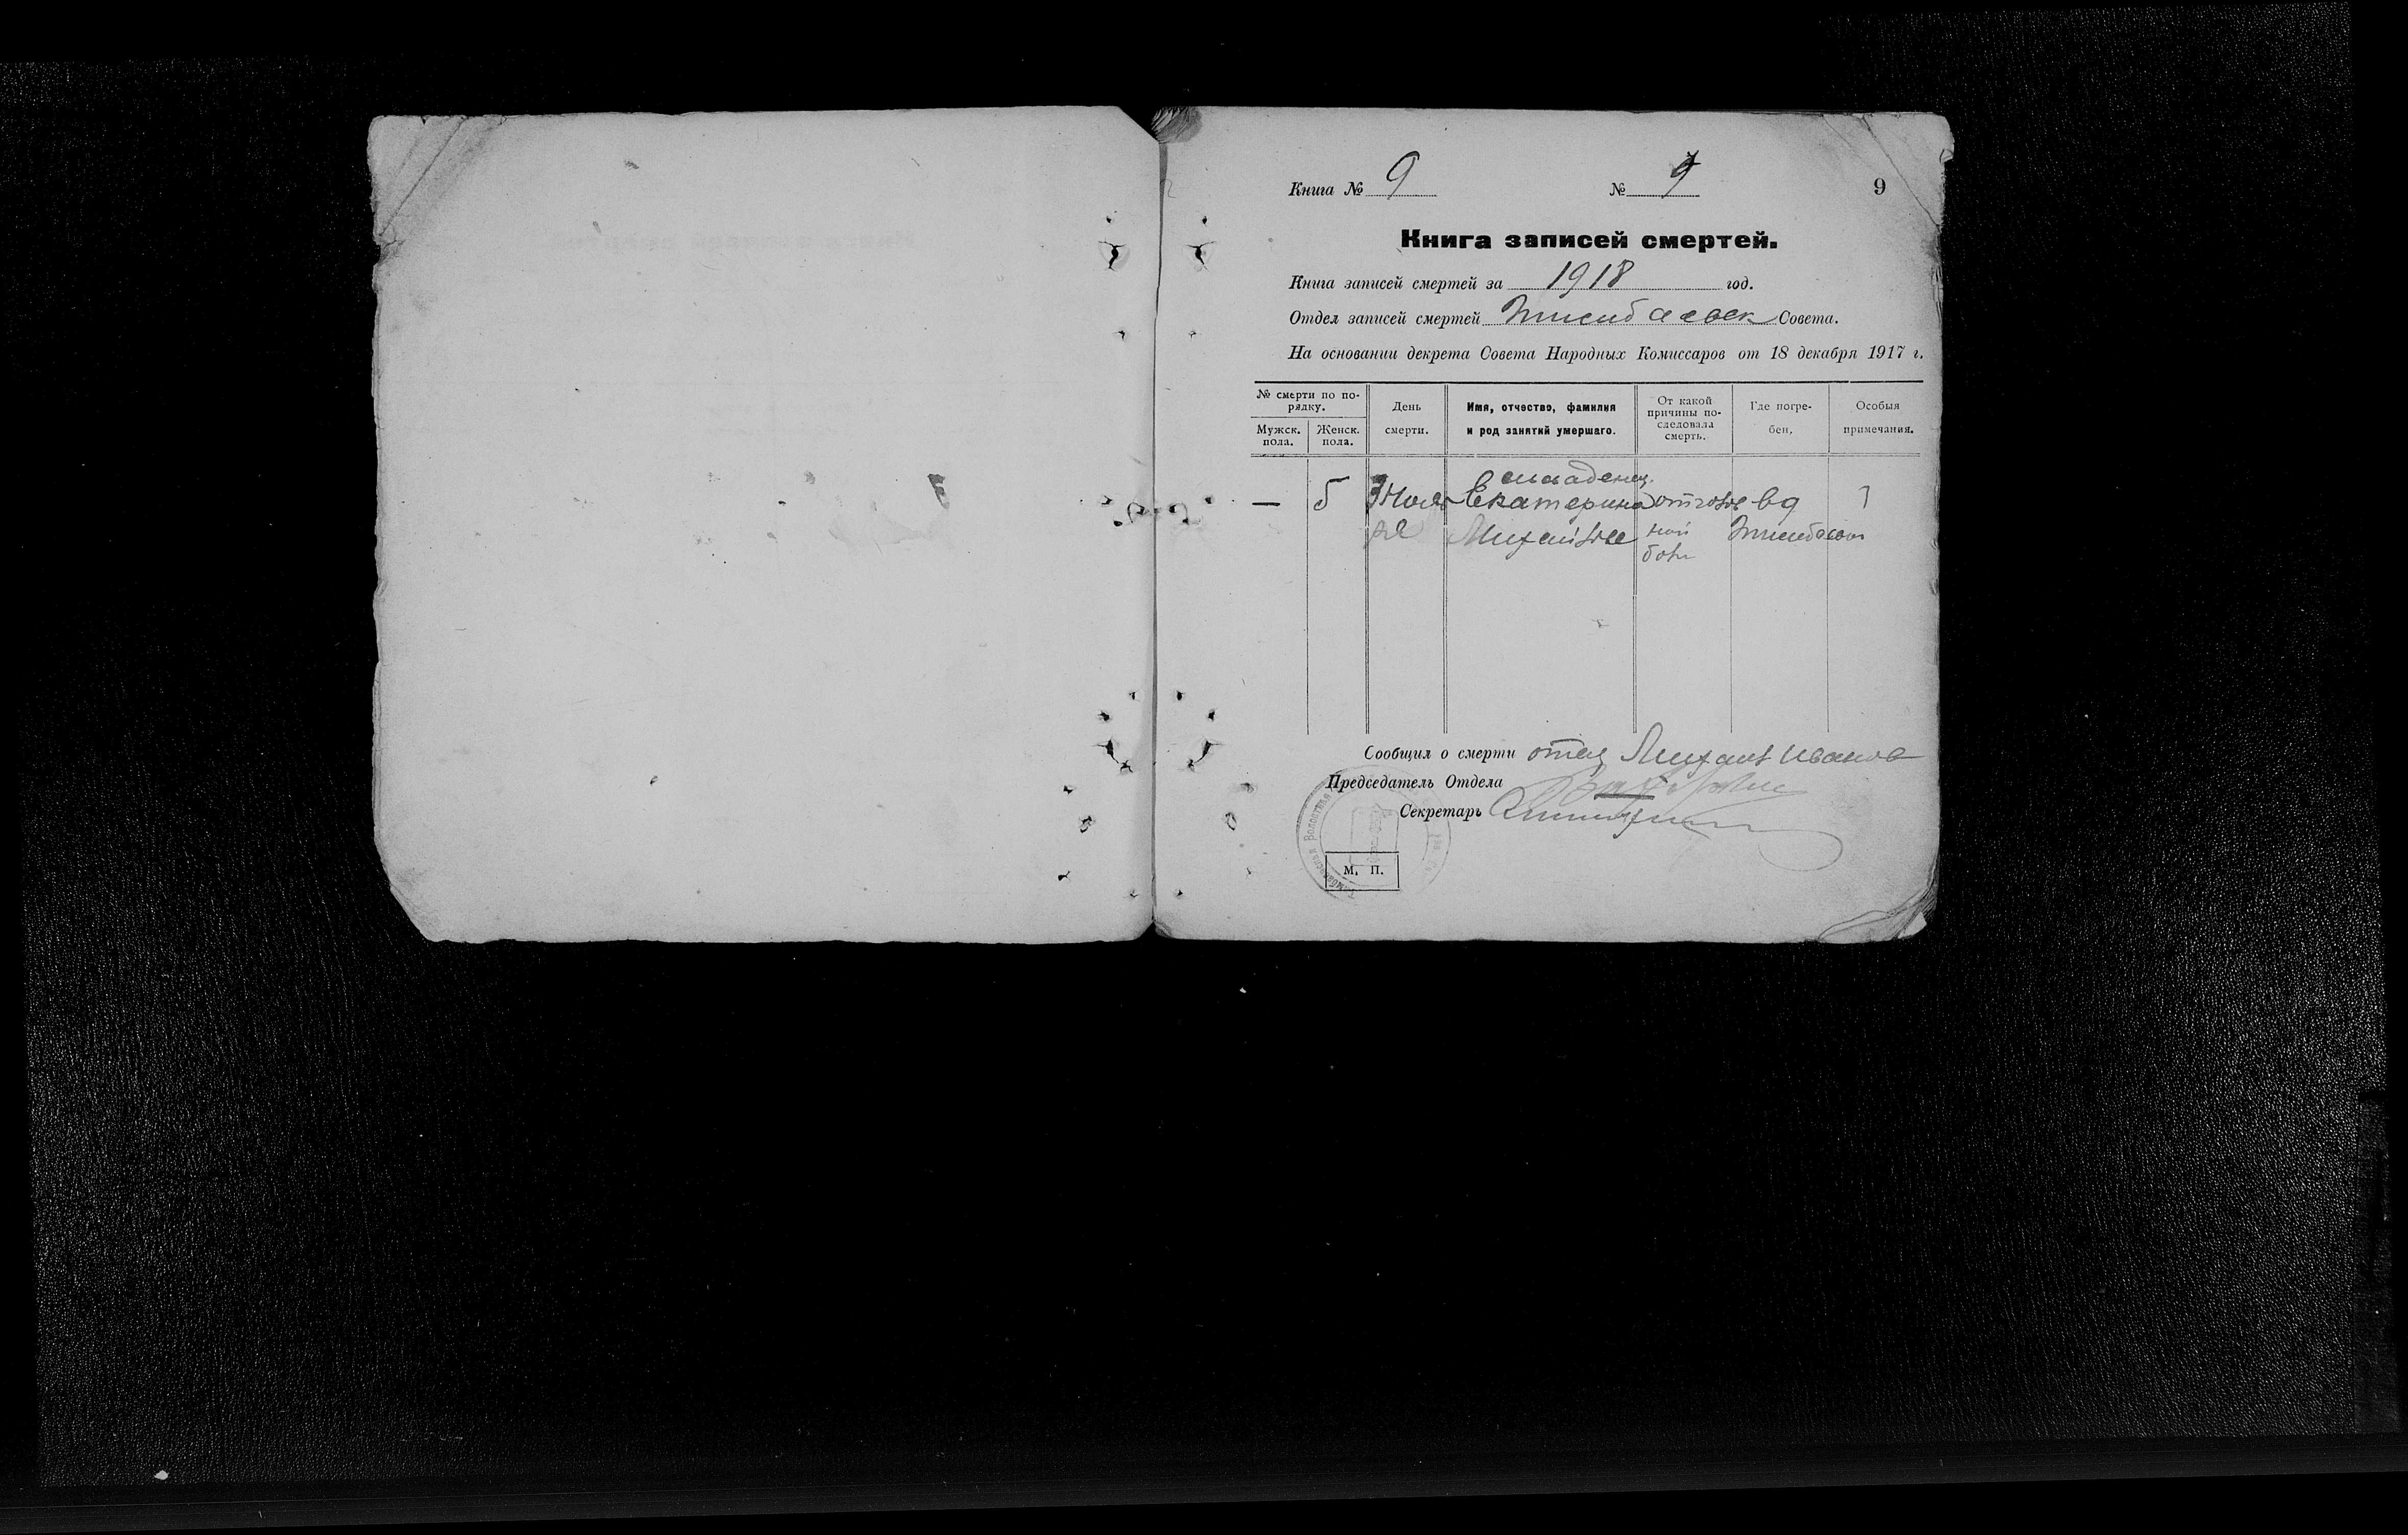 Книга № 9 № 9 9
Книга записей смертей.
Книга записей смертей за 1918 год.
Отдел записей смертей Совета.
На основании декрета Совета Народных Комиссаров от 18 декабря 1917 г.
№ смерти по по-
рядку.
Мужск.
пола.
Женск.
пола.
День
смерти.
Имя, отчество, фамилия
и род занятий умершаго.
От какой
причины по-
следовала
смерть.
Где погре-
бен.
Особыя
примечания.
младенец
— 5 Екатерина
ной
Сообщил о смерти отец Михаил Иванов
Председатель Отдела
Секретарь
М. П.